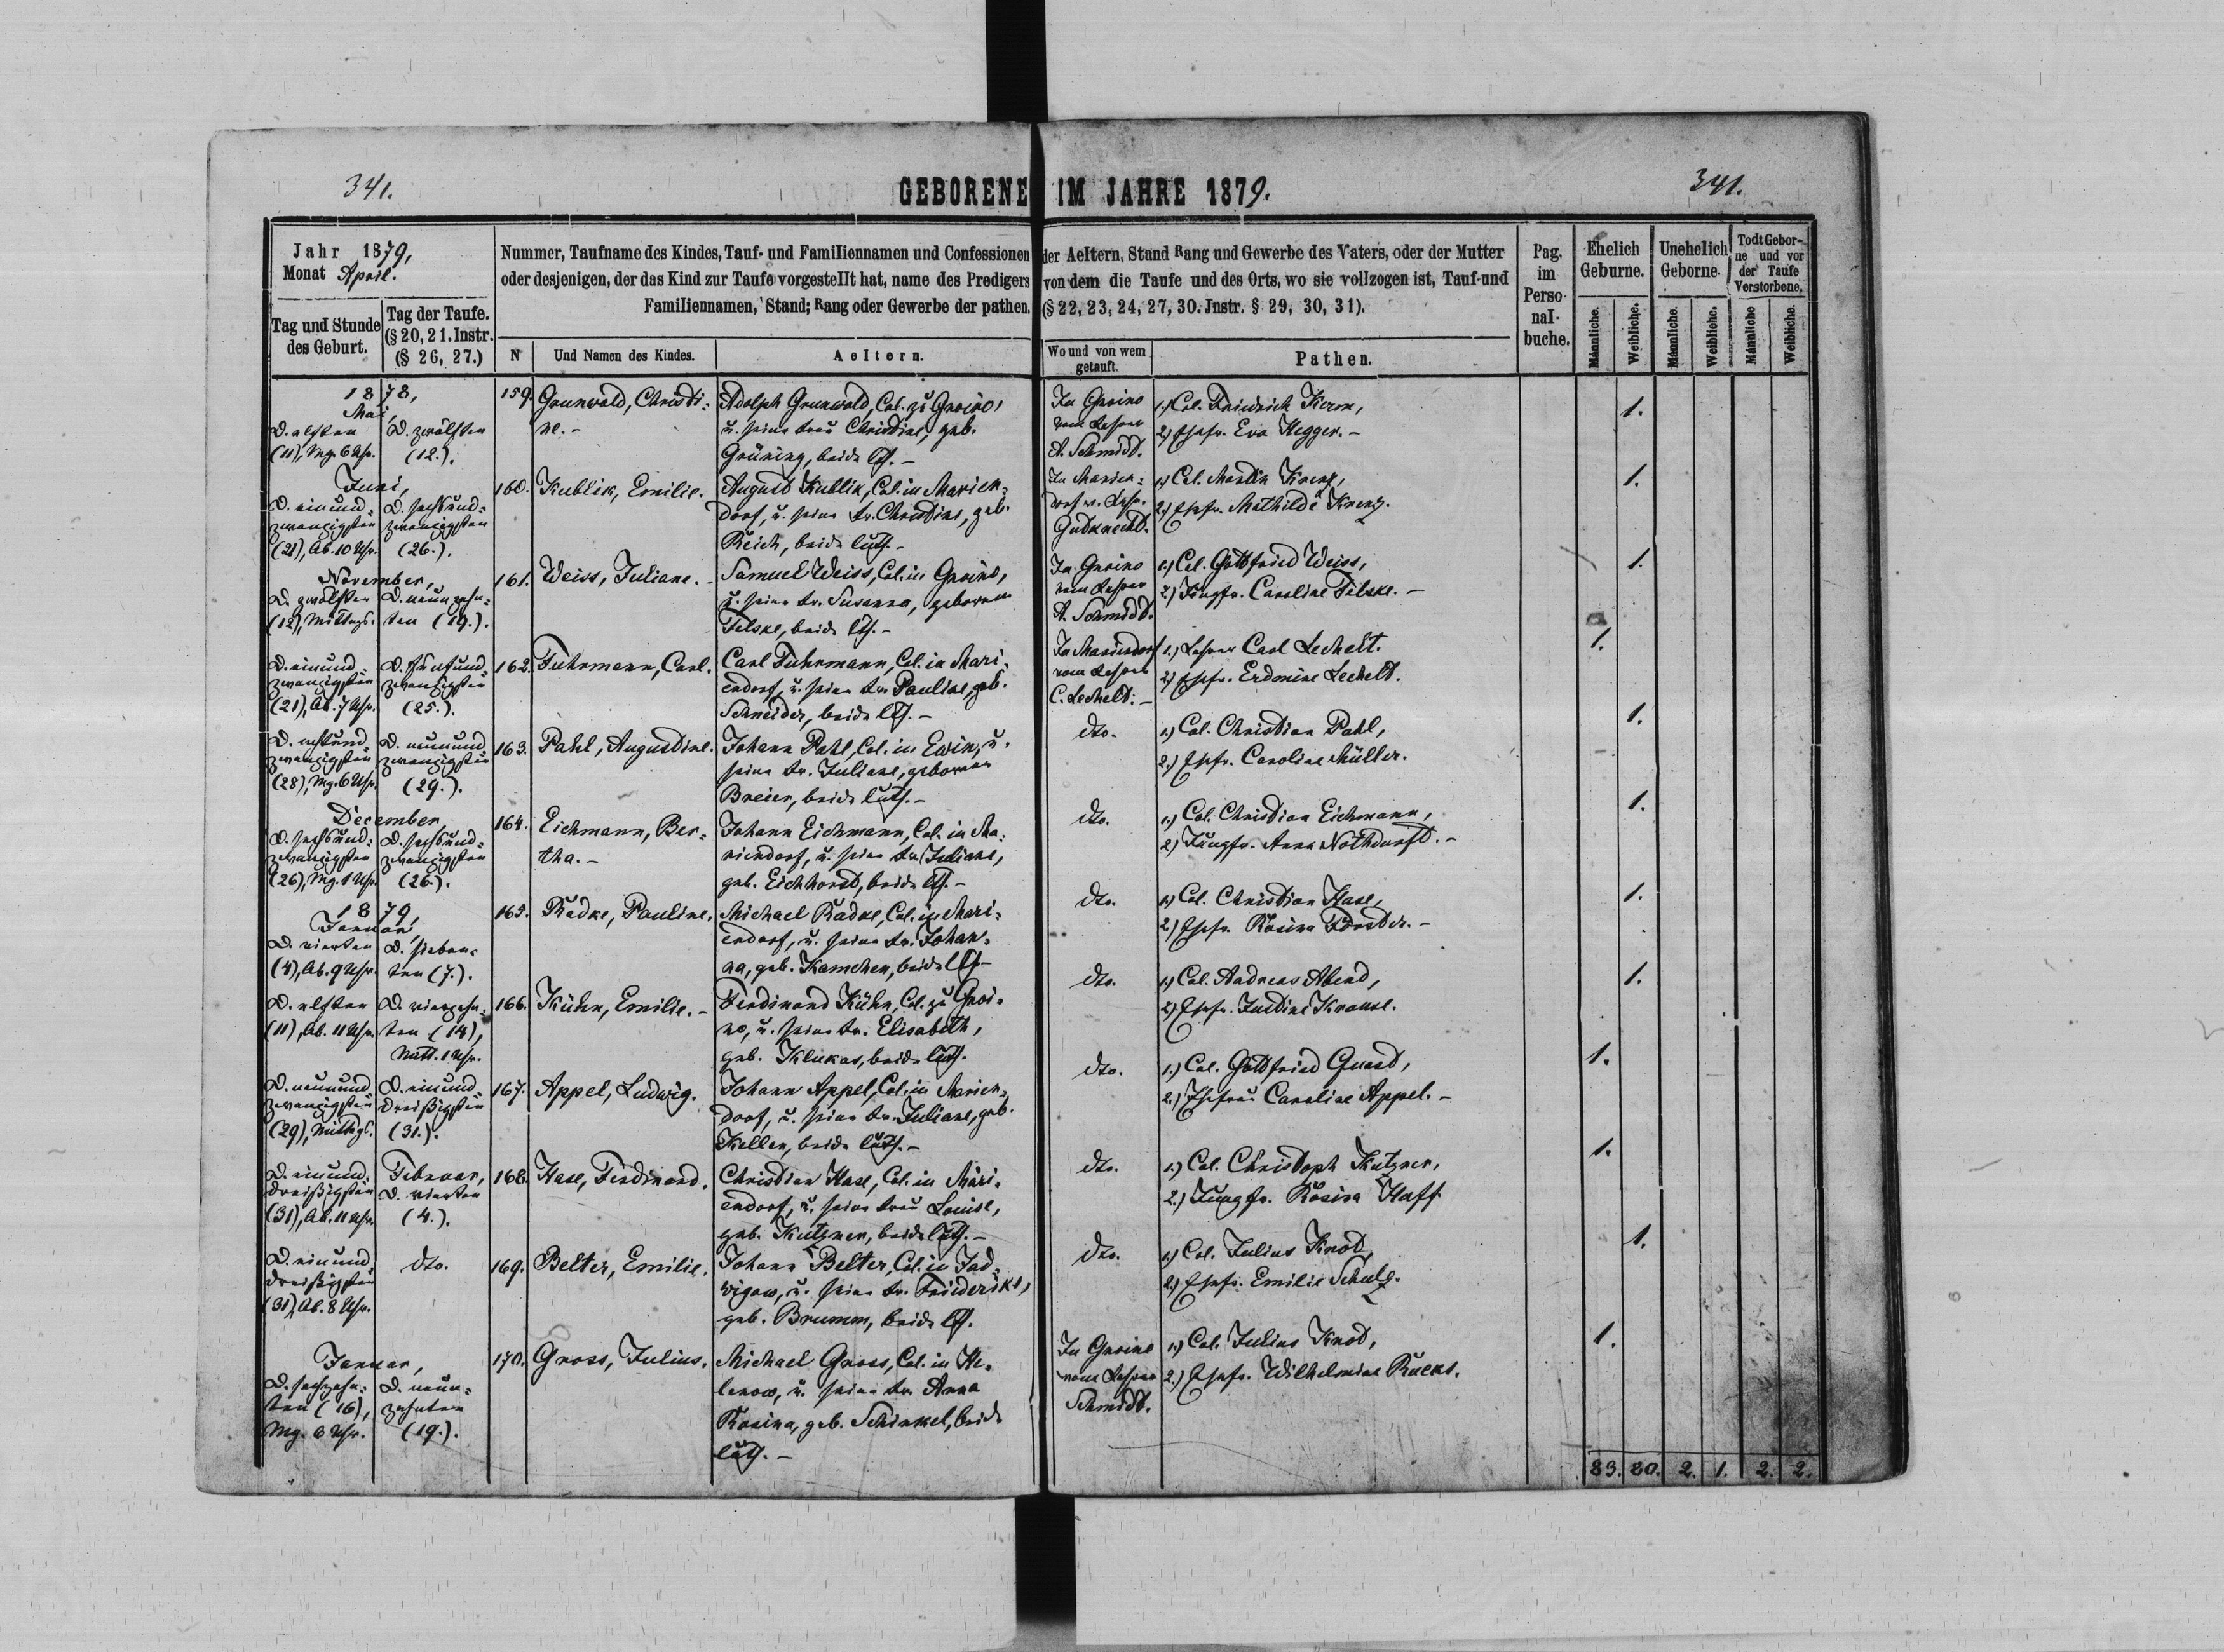 341.
GEBORENE IM JAHRE 1879.
341.
Jahr 1879,
Monat April.
Tag und Stunde
des Geburt.
Tag der Taufe.
(§ 20, 21. Instr.
(§ 26, 27.)
Nummer, Taufname des Kindes, Tauf- und Familiennamen und Confessionen der Aeltern, Stand Rang und Gewerbe des Vaters, oder der Mutter
oder desjenigen, der das Kind zur Taufe vorgestellt hat, name des Predigers von dem die Taufe und des Orts, wo sie vollzogen ist, Tauf-und
Familiennamen, Stand; Rang oder Gewerbe der pathen. (§ 22, 23, 24, 27, 30. Jnstr. § 29, 30, 31).
N
Und Namen des Kindes.
Aeltern.
Wo und von wem
getauft.
Pathen.
Pag.
im
Perso-
nal-
buche.
Ehelich
Geburne.
Unehelich
Geborne.
Todt Gebor-
ne und vor
der Taufe
Verstorbene.
Männliche.
Weibliche.
Männliche.
Weibliche.
Männliche
Weibliche.
1878,
Mai,
D. elften
(11), Mg. 6 Uhr.
D. zwölften
(12.).
159. Grunwald, Christi-
ne. -
Adolph Grunwald, Col. zu Gnoino,
u. seine Frau Christine, geb.
Grüning, beide lth. -
In Gnoino
vom Lehrer
A. Schmidt.
1.) Col. Friedrich Kerm,
2.) Ehefr. Eva Hegger. -
1.
Juni,
D. einund-
zwanzigsten
(21), Ab. 10 Uhr.
D. sechsund-
zwanzigsten
(26.).
160. Kublik, Emilie.
August Kublik, Col. in Marien-
dorf, u. seine Fr. Christine, geb.
Reich, beide luth. -
In Marien-
dorf v. Lehr.
Gudknecht.
1.) Col. Martin Krenz,
2.) Ehefr. Mathilde Krenz.
1.
November,
D. zwölften
(12), Mittags.
D. neunzehn-
ten (19.).
161. Weiss, Juliane. -
Samuel Weiss, Col. in Gnoino,
u. seine Fr. Susanna, geborene
Felske, beide lth. -
In Gnoino
vom Lehrer
A. Schmidt.
1.) Col. Gottfried Weiss,
2.) Jungfr. Caroline Filske. -
1.
D. einund-
zwanzigsten
(21), Ab. 7 Uhr.
D. fünfund-
zwanzigsten
(25.).
162. Fuhrmann, Carl.
Carl Fuhrmann, Col. in Mari-
endorf, u. seine Fr. Pauline, geb.
Schneider, beide lth. -
In Mariendorf
vom Lehrer
C. Lechelt. -
1.) Lehrer Carl Lechelt.
2.) Ehefr. Erdmine Lechelt.
1.
D. achtund-
zwanzigsten
(28), Mg. 6 Uhr.
D. neunund-
zwanzigsten
(29.).
163. Pahl, Augustine.
Johann Pahl, Col. in Ewin, u.
seine Fr. Juliane, geborene
Breier, beide luth. -
dto.
1.) Col. Christian Pahl,
2.) Ehefr. Caroline Müller.
1.
December,
D. sechsund-
zwanzigsten
(26), Mg. 1 Uhr.
D. sechsund-
zwanzigsten
(26.).
164. Eichmann, Ber-
tha. -
Johann Eichmann, Col. in Ma-
riendorf, u. seine Fr. Juliane,
geb. Eichhorst, beide lth. -
dto.
1.) Col. Christian Eichmann,
2.) Jungfr. Anna Nothdurft. -
1.
1879,
Januar,
D. vierten
(4), Ab. 9 Uhr.
D. sieben-
ten (7.).
165. Radke, Pauline.
Michael Radke, Col. in Mari-
endorf, u. seine Fr. Johan-
na, geb. Kamchen, beide lth. -
dto.
1.) Col. Christian Hase,
2.) Ehefr. Rosina Forster. -
1.
D. elften
(11), Ab. 11 Uhr.
D. vierzehn-
ten (14),
Mitt. 1 Uhr.
166. Kühn, Emilie. -
Ferdinand Kühn, Col. zu Gnoi-
no, u. seine Fr. Elisabeth,
geb. Klukas, beide luth.
dto.
1.) Col. Andreas Abend,
2.) Ehefr. Justine Krause.
1.
D. neunund-
zwanzigsten
(29), Mittgs.
D. einund-
dreißigsten
(31.).
167. Appel, Ludwig.
Johann Appel, Col. in Marien-
dorf, u. seine Fr. Juliane, geb.
Keller, beide luth. -
dto.
1.) Col. Gottfried Quast,
2.) Ehefrau Caroline Appel. -
1.
D. einund-
dreißigsten
(31), Ab. 11 Uhr.
Februar,
D. vierten
(4.).
168. Hase, Ferdinand.
Christian Hase, Col. in Mari-
endorf, u. seine Frau Louise,
geb. Kutzner, beide luth. -
dto.
1.) Col. Christoph Kutzner,
2.) Jungfr. Rosina Haff.
1.
D. einund-
dreißigsten
(31), Ab. 8 Uhr.
dto.
169. Belter, Emilie.
Johann Belter, Col. in Jad-
wigow, u. seine Fr. Friederike,
geb. Brumm, beide lth.
dto.
1.) Col. Julius Knod,
2.) Ehefr. Emilie Schulz.
1.
Januar,
D. sechzehn-
ten (16),
Mg. 6 Uhr.
D. neun-
zehnten
(19.).
170. Gross, Julius.
Michael Gross, Col. in He-
lenow, u. seine Fr. Anna
Rosina, geb. Schinkel, beide
luth. -
In Gnoino
vom Lehrer
Schmidt.
1.) Col. Julius Knod,
2.) Ehefr. Wilhelmine Rucks.
1.
83. 80. 2. 1. 2. 2.